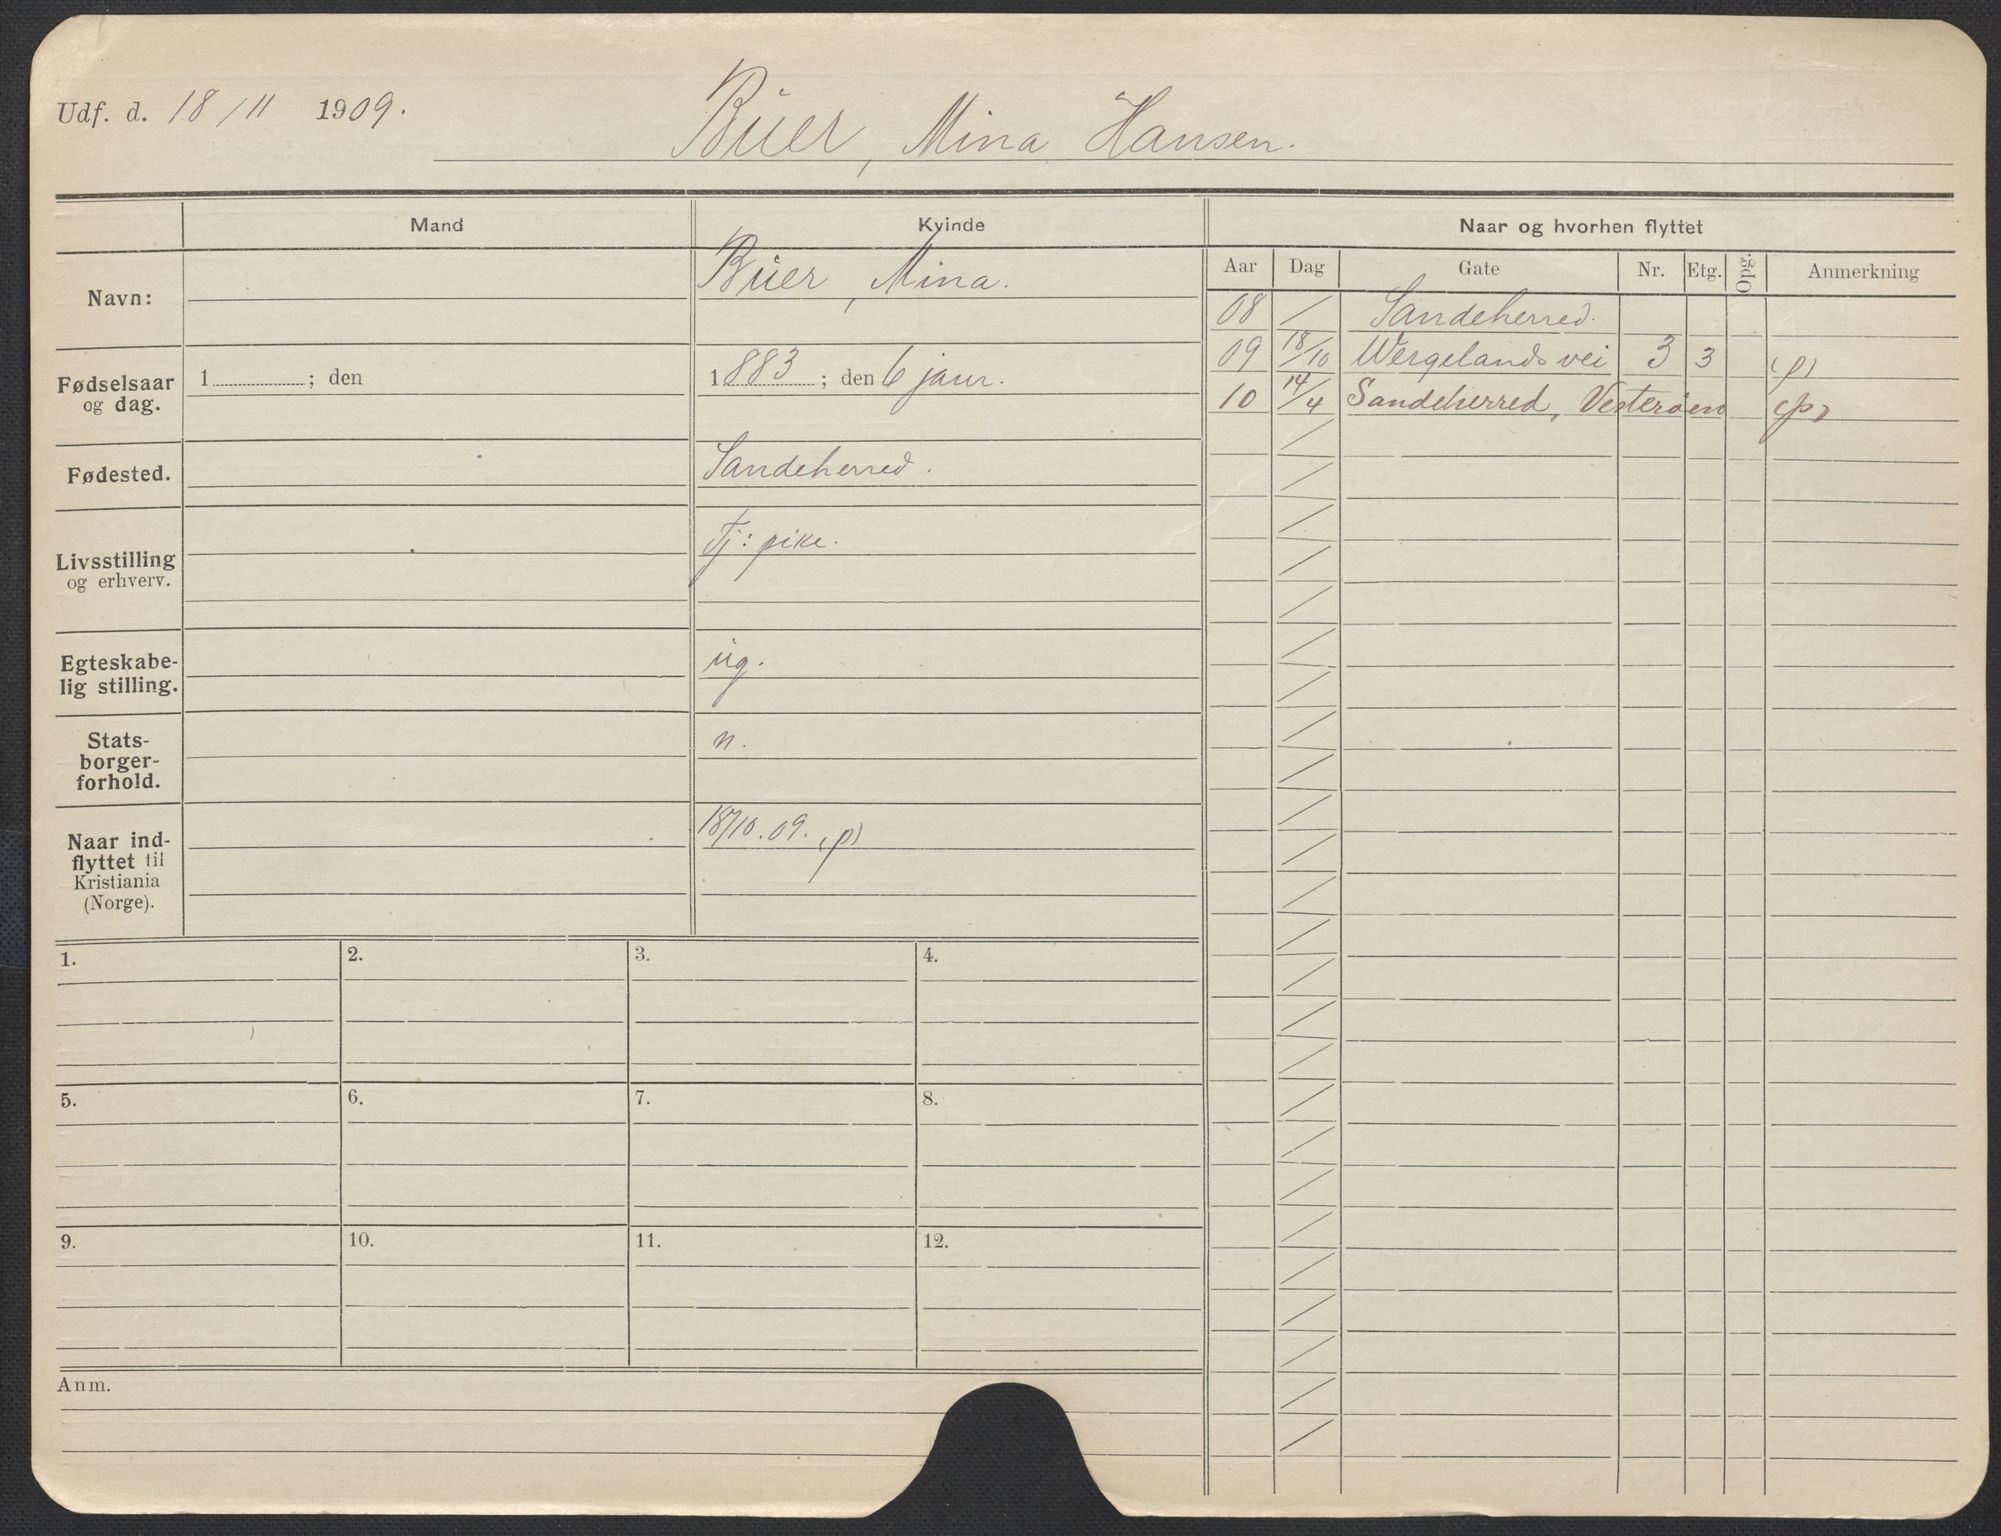 Udf. d. 18/11 1909.
Buer, Mina Hansen.
Mand
Kvinde
Naar og hvorhen flyttet
Aar Dag Gate Nr. Etg. Opg. Anmerkning
Navn:
Buer, Mina.
08 / Sandeherred.
09 18/10 Wergelands vei 3 3 (p)
10 14/4 Sandeherred, Vesterøen (p)
Fødselsaar
og dag.
1 ; den
1883 ; den 6 janr.
Fødested.
Sandeherred.
Livsstilling
og erhverv.
Tj: pike.
Egteskabe-
lig stilling.
ug.
Stats-
borger-
forhold.
n.
Naar ind-
flyttet til
Kristiania
(Norge).
18/10.09. (p)
1. 2. 3. 4.
5. 6. 7. 8.
9. 10. 11. 12.
Anm.